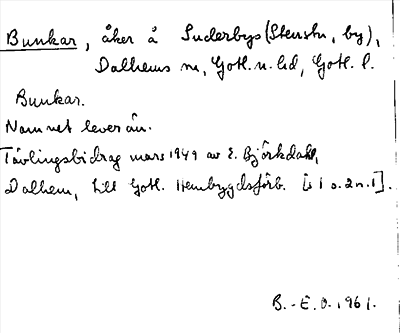 Bunkar, åker å Suderbys (Stenstu, by),
Dalhems sn, Gotl. n. hd, Gotl. l.
Bunkar.
Namnet lever än.
Tävlingsbidrag mars 1949 av E. Björkdahl,
Dalhem, till Gotl. Hembygdsförb. [s 1 o. 2 n. 1].
B.-E. O. 1961.